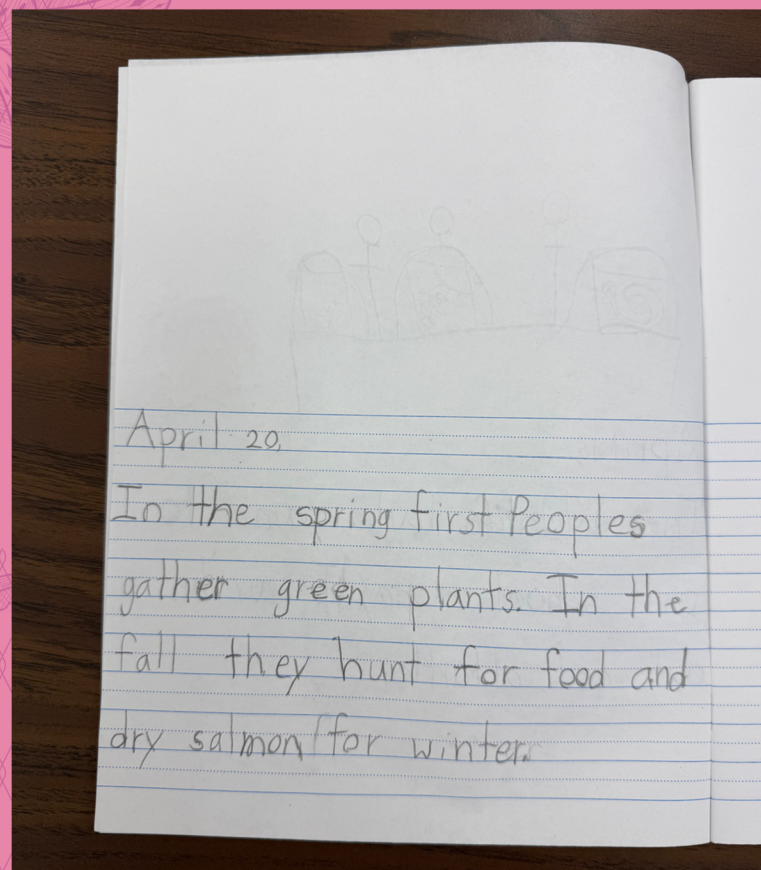 April 20,
In the spring first Peoples
gather green plants. In the
fall they hunt for food and
dry salmon for winter.